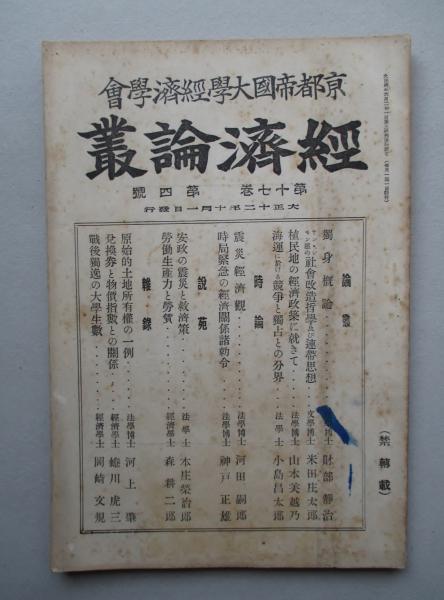 京都帝國大學經濟學會
經濟論叢
第十七卷 第四號
大正十二年十月一日發行
論叢
獨身概論 財部靜治
社會改造哲學及び連帶思想 文學博士 米田庄太郎
植民地の經濟政策に就きて 法學博士 山本美越乃
海運に於ける競爭と獨占との分界 法學士 小島昌太郎
時論
震災經濟觀 法學博士 河田嗣郎
時局緊急の經濟關係諸勅令 法學博士 神戶正雄
說苑
安政の震災と救濟策 法學士 本庄榮治郎
勞働生產力と勞賃 經濟學士 森耕二郎
雜錄
原始的土地所有權の一例 法學博士 河上肇
兌換券と物價指數との關係 經濟學士 蜷川虎三
戰後獨逸の大學生數 經濟學士 岡崎文規
(禁轉載)